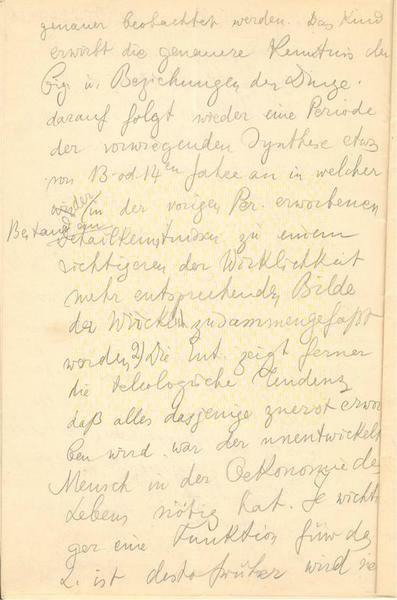 genauer beobachtet werden. Das Kind
erwirbt die genauere Kenntnis der
Eig. u. Beziehungen der Dinge.
darauf folgt wieder eine Periode
der vorwiegenden Synthese etwa
von 13. od. 14ten Jahre an in welcher
wieder in der vorigen Per. erworbenen
Detailkenntnissen zu einem
richtigeren der Wirklichkeit
mehr entsprechenden Bilde
der Wirklichk. zusammengefaßt
werden. 2) Die Ent. zeigt ferner
die teleologische Tendenz
daß alles dasjenige zuerst erwor
ben wird. was der unentwickelte
Mensch in der Oekonomie des
Lebens nötig hat. Je wichti
ger eine Funktion für das
L. ist desto früher wird sie